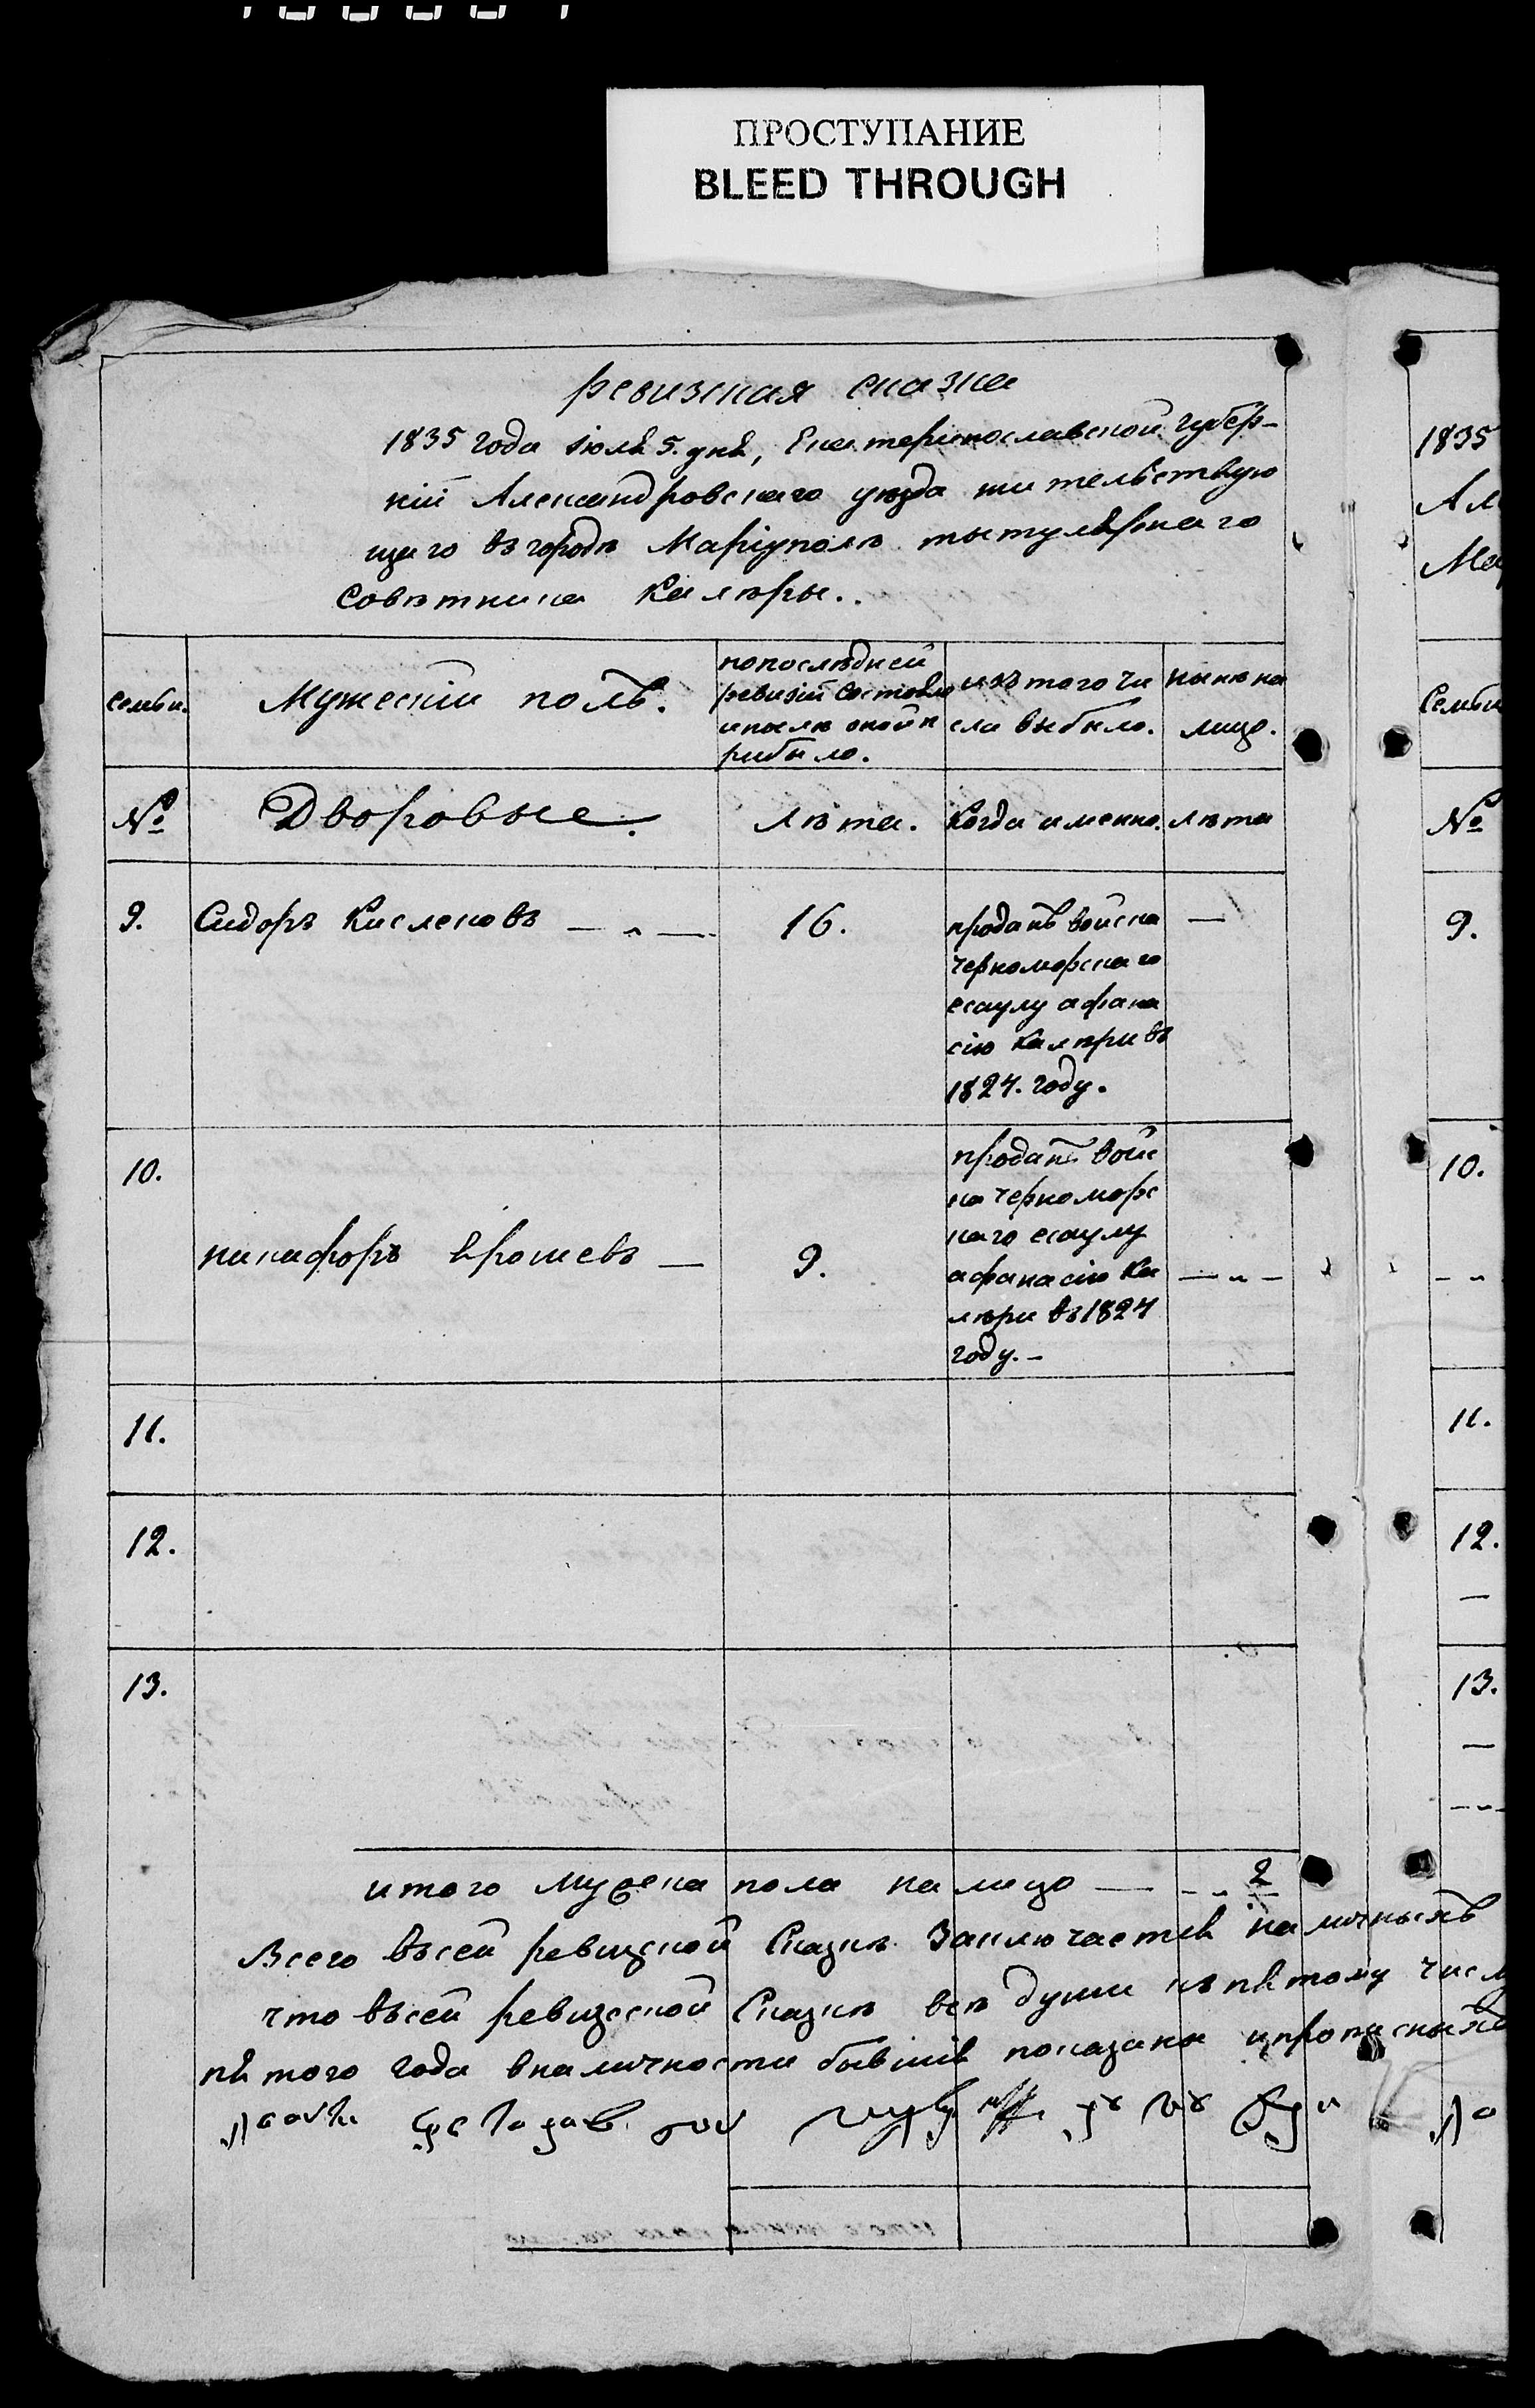 ПРОСТУПАНИЕ
BLEED THROUGH
ревизская сказка
1835 года іюля 5. дня, Екатеринославской губер-
ніи Александровскаго уезда жительствую
щаго въ городѣ Маріуполѣ тытулярнаго
Совѣтника Калѣры..
семьи.
Мужескій полъ.
попослѣдней
ревизіи состояло
ипослѣ оной п
рибыло.
изъ того чи
сла выбыло.
нынѣ на
лицо.
№
Дворовые.
лѣта.
Когда именно.
лѣта
9.
Сидоръ Кисленовъ
16.
проданъ войска
черноморскаго
есаулу афана
сію Калѣри въ
1824. году.
—
10.
никифоръ
9.
проданъ войс
ка черноморс
каго есаулу
афанасію Ка
лѣри въ 1824
году.-
— „ —
11.
12.
13.
итого мужеска пола на лицо — - „ 2
Всего въсей ревизской Сказкѣ Заключается наличныхъ
что въсей ревизской Сказкѣ всѣ души къ пятому числу
того года вналичности бывшія показаны
1835
Ал
Мар
Семьи
№
9.
10.
- „
11.
12.
—
13.
—
--„